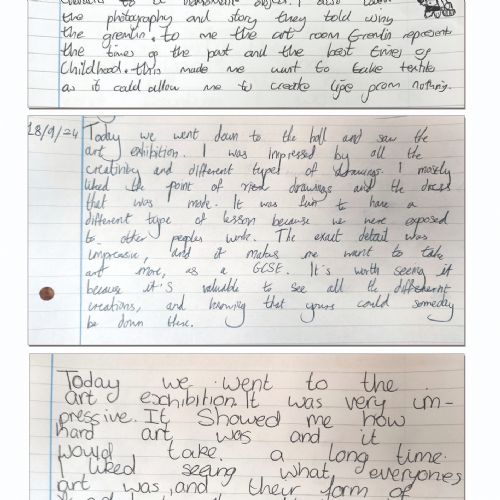 the photography and story they told why
the gremlin. to me the art room Gremlin represents
the times of the past and the best times of
Childhood. this made me want to take textiles
as it could allow me to create life from nothing.
18/9/24 Today we went down to the hall and saw the
art exhibition. I was impressed by all the
creativity and different types of drawings. I mostly
liked the point of view drawings and the dress
that was made. It was fun to have a
different type of lesson because we were exposed
to other peoples work. The exact detail was
impressive, and it makes me want to take
art more, as a GCSE. It's worth seeing it
because it's valuable to see all the different
creations, and knowing that yours could someday
be down there.
Today we went to the
art exhibition. It was very im-
pressive. It Showed me how
hard art was and it
would take a long time.
I liked seeing what everyones
art was, and their form of